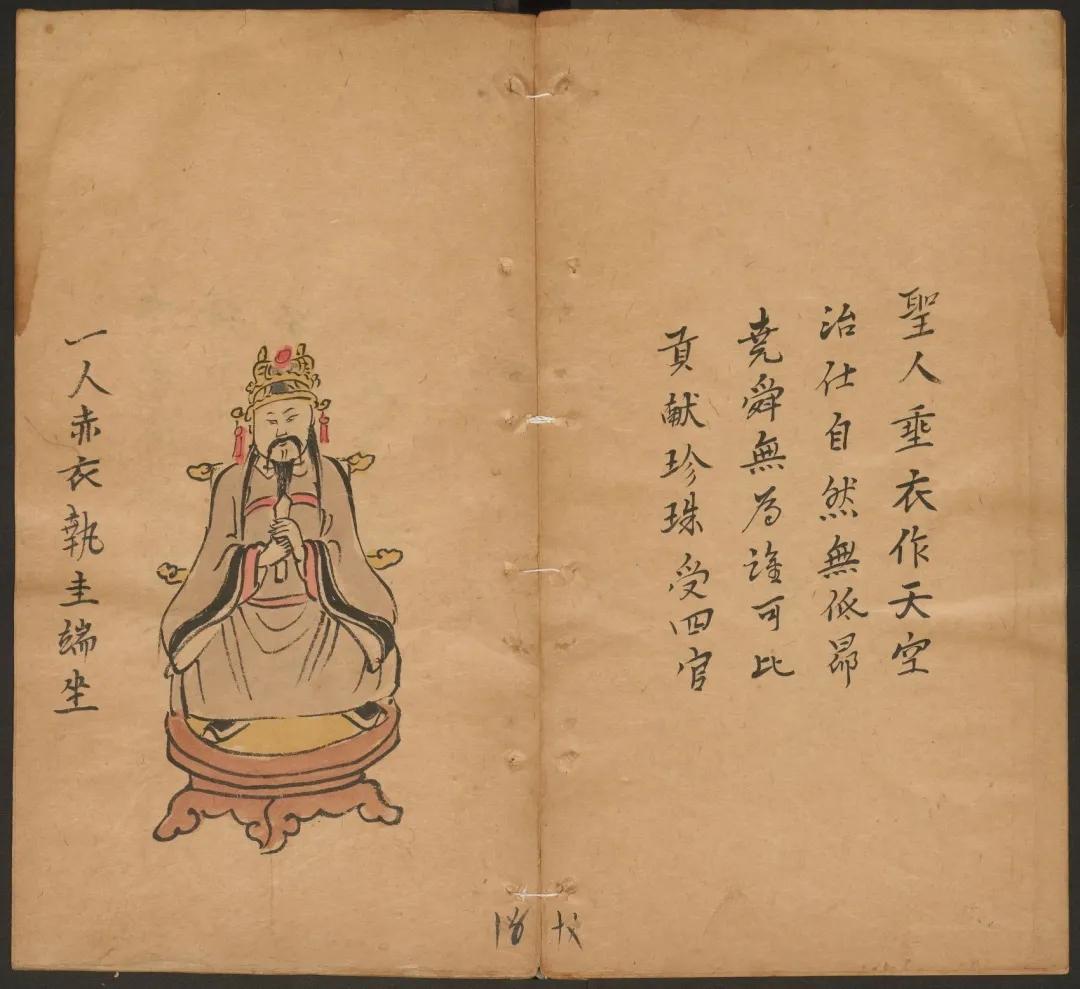 聖人垂衣作天空
治仕自然無低昂
堯舜無為誰可比
貢献珍珠受四官
一人赤衣執圭端坐